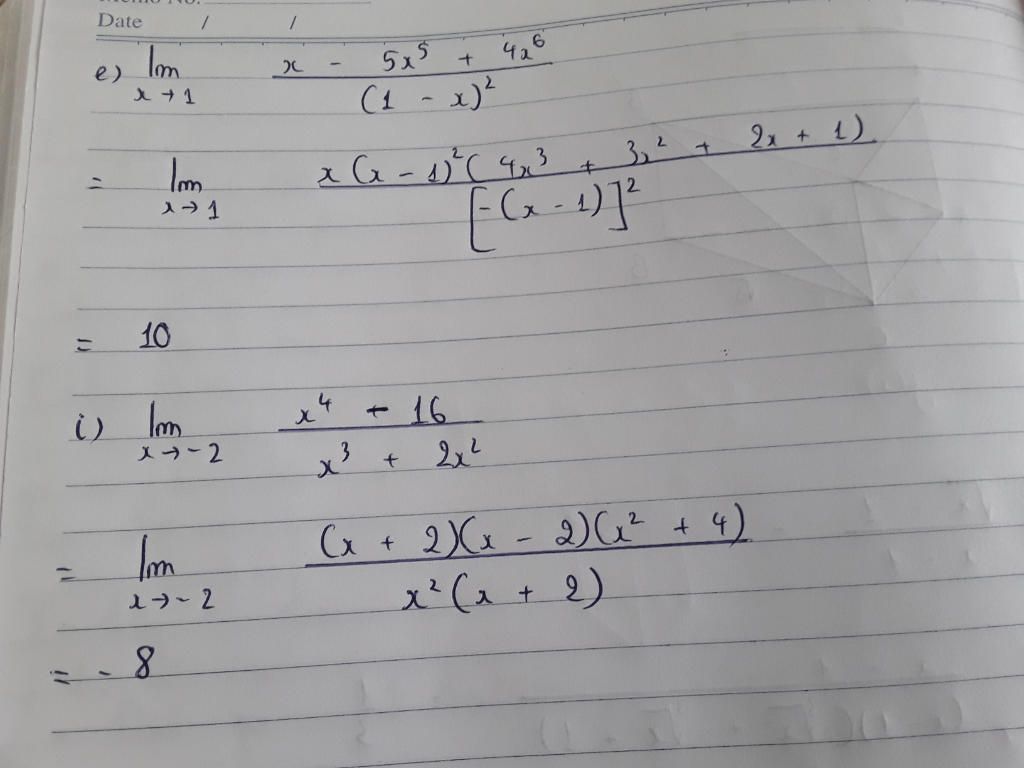 Memo No.
Date / /
e) lim x→1 (x - 5x⁵ + 4x⁶) / (1 - x)²
= lim x→1 x(x - 1)²(4x³ + 3x² + 2x + 1) / [-(x - 1)]²
= 10
i) lim x→-2 (x⁴ - 16) / (x³ + 2x²)
= lim x→-2 (x + 2)(x - 2)(x² + 4) / x²(x + 2)
= - 8